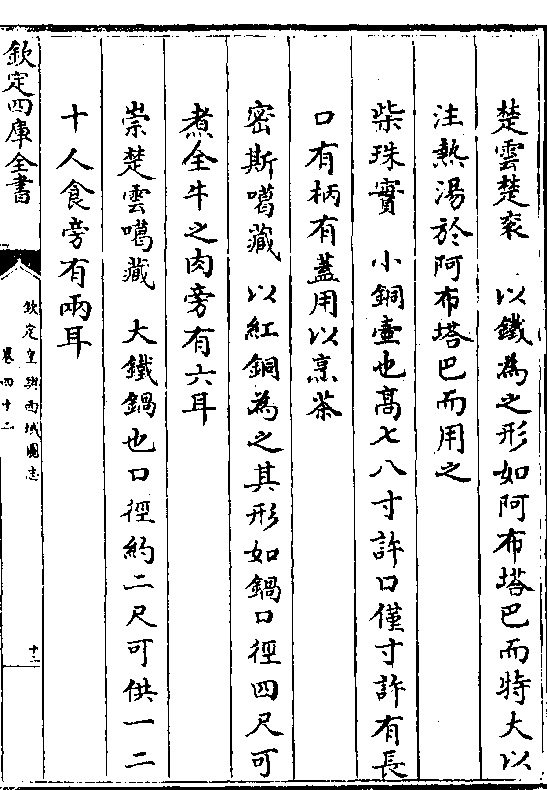 楚雲楚衮　以鐵為之形如阿布塔巴而特大以
注熱湯於阿布塔巴而用之
柴珠實　小銅壷也髙七八寸許口僅寸許有長
口有柄有蓋用以烹茶
密斯噶藏　以紅銅為之其形如鍋口徑四尺可
煮全牛之肉旁有六耳
崇楚雲噶藏　大鐵鍋也口徑約二尺可供一二
十人食旁有兩耳
欽定四庫全書
欽定皇輿西域圖志
卷四十二
十二